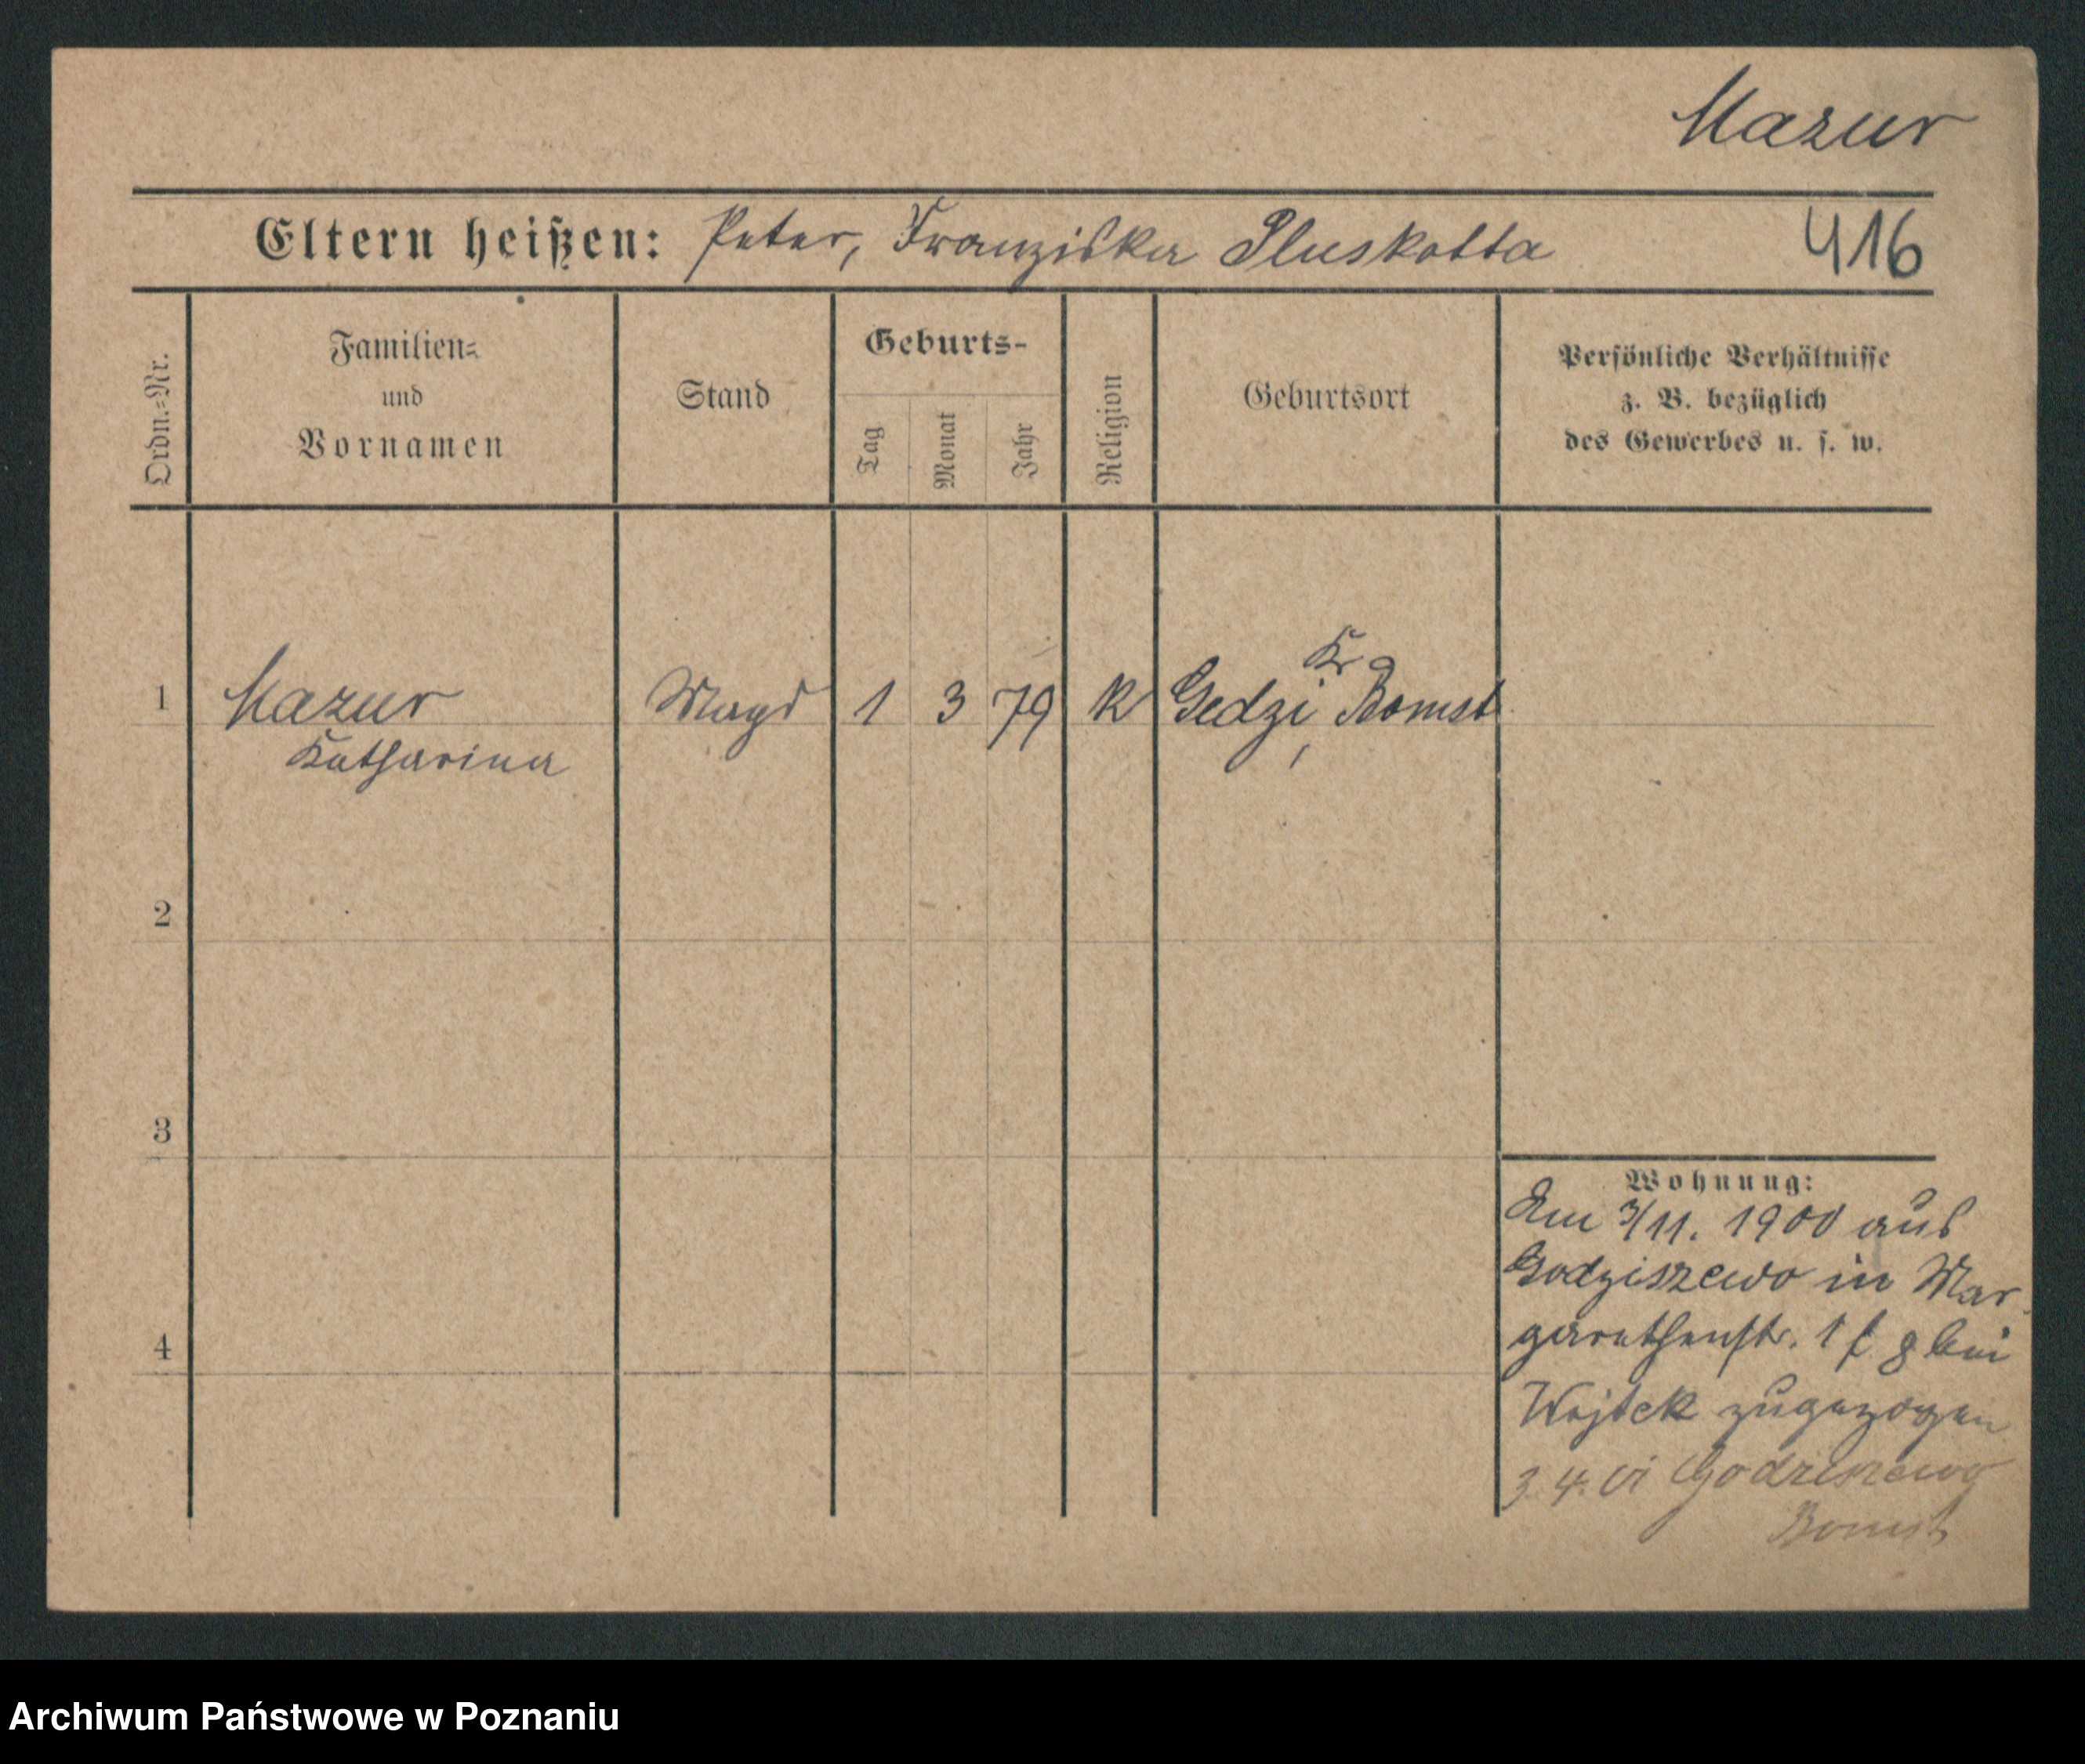 Mazur
Eltern heißen: Peter, Franziska Pluskotta 416
Ordn.=Nr.
Familien=
und
Vornamen
Stand
Geburts-
Tag
Monat
Jahr
Religion
Geburtsort
Persönliche Verhältnisse
z. B. bezüglich
des Gewerbes u. s. w.
Kr
1 Mazur Magd 1 3 79 K Gedzi, Bomst
Katharina
2
3
4
Wohnung:
Am 3/11. 1900 aus
Godziszewo in Mar
garethenstr. 1 f. 8 bei
Wojtek zugezogen
3. 4. 01 Godziszewo
Bomst
Archiwum Państwowe w Poznaniu